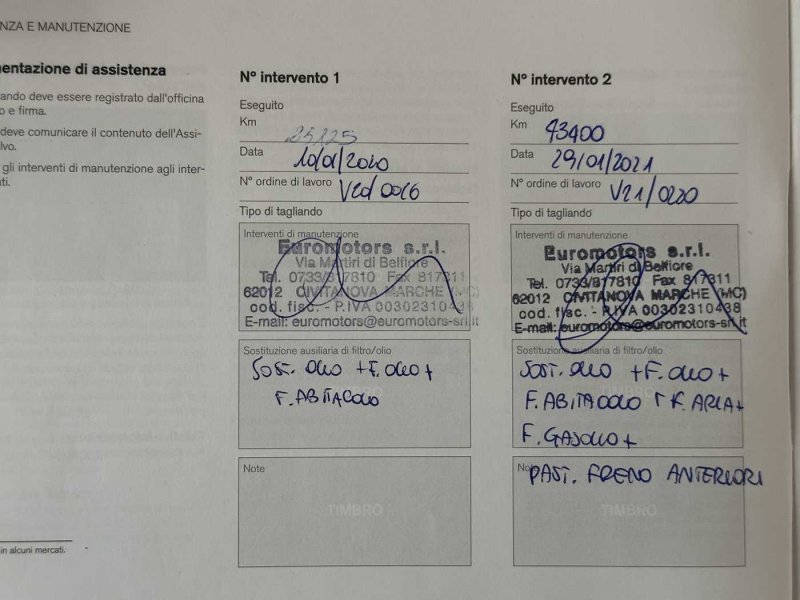 NZA E MANUTENZIONE
entazione di assistenza
ando deve essere registrato dall'officina
o e firma.
deve comunicare il contenuto dell'Assi-
lvo.
gli interventi di manutenzione agli inter-
ti.
in alcuni mercati.
N° intervento 1
Eseguito
Km 25125
Data 10/01/2020
N° ordine di lavoro V20/0026
Tipo di tagliando
Interventi di manutenzione
Euromotors s.r.l.
Via Martiri di Belfiore
Tel. 0733/817810 Fax 817811
62012 CIVITANOVA MARCHE (MC)
cod. fisc. - P.IVA 00302310438
E-mail: euromotors@euromotors-srl.it
Sostituzione ausiliaria di filtro/olio
SOST. OLIO + F. OLIO +
F. ABITACOLO
Note
TIMBRO
N° intervento 2
Eseguito
Km 43400
Data 29/01/2021
N° ordine di lavoro V21/0220
Tipo di tagliando
Interventi di manutenzione
Euromotors s.r.l.
Via Martiri di Belfiore
Tel. 0733/817810 Fax 817811
62012 CIVITANOVA MARCHE (MC)
cod. fisc. - P.IVA 00302310438
E-mail: euromotors@euromotors-srl.it
Sostituzione ausiliaria di filtro/olio
SOST. OLIO + F. OLIO +
F. ABITACOLO + F. ARIA +
F. GASOLIO +
Note
PAST. FRENO ANTERIORI
TIMBRO